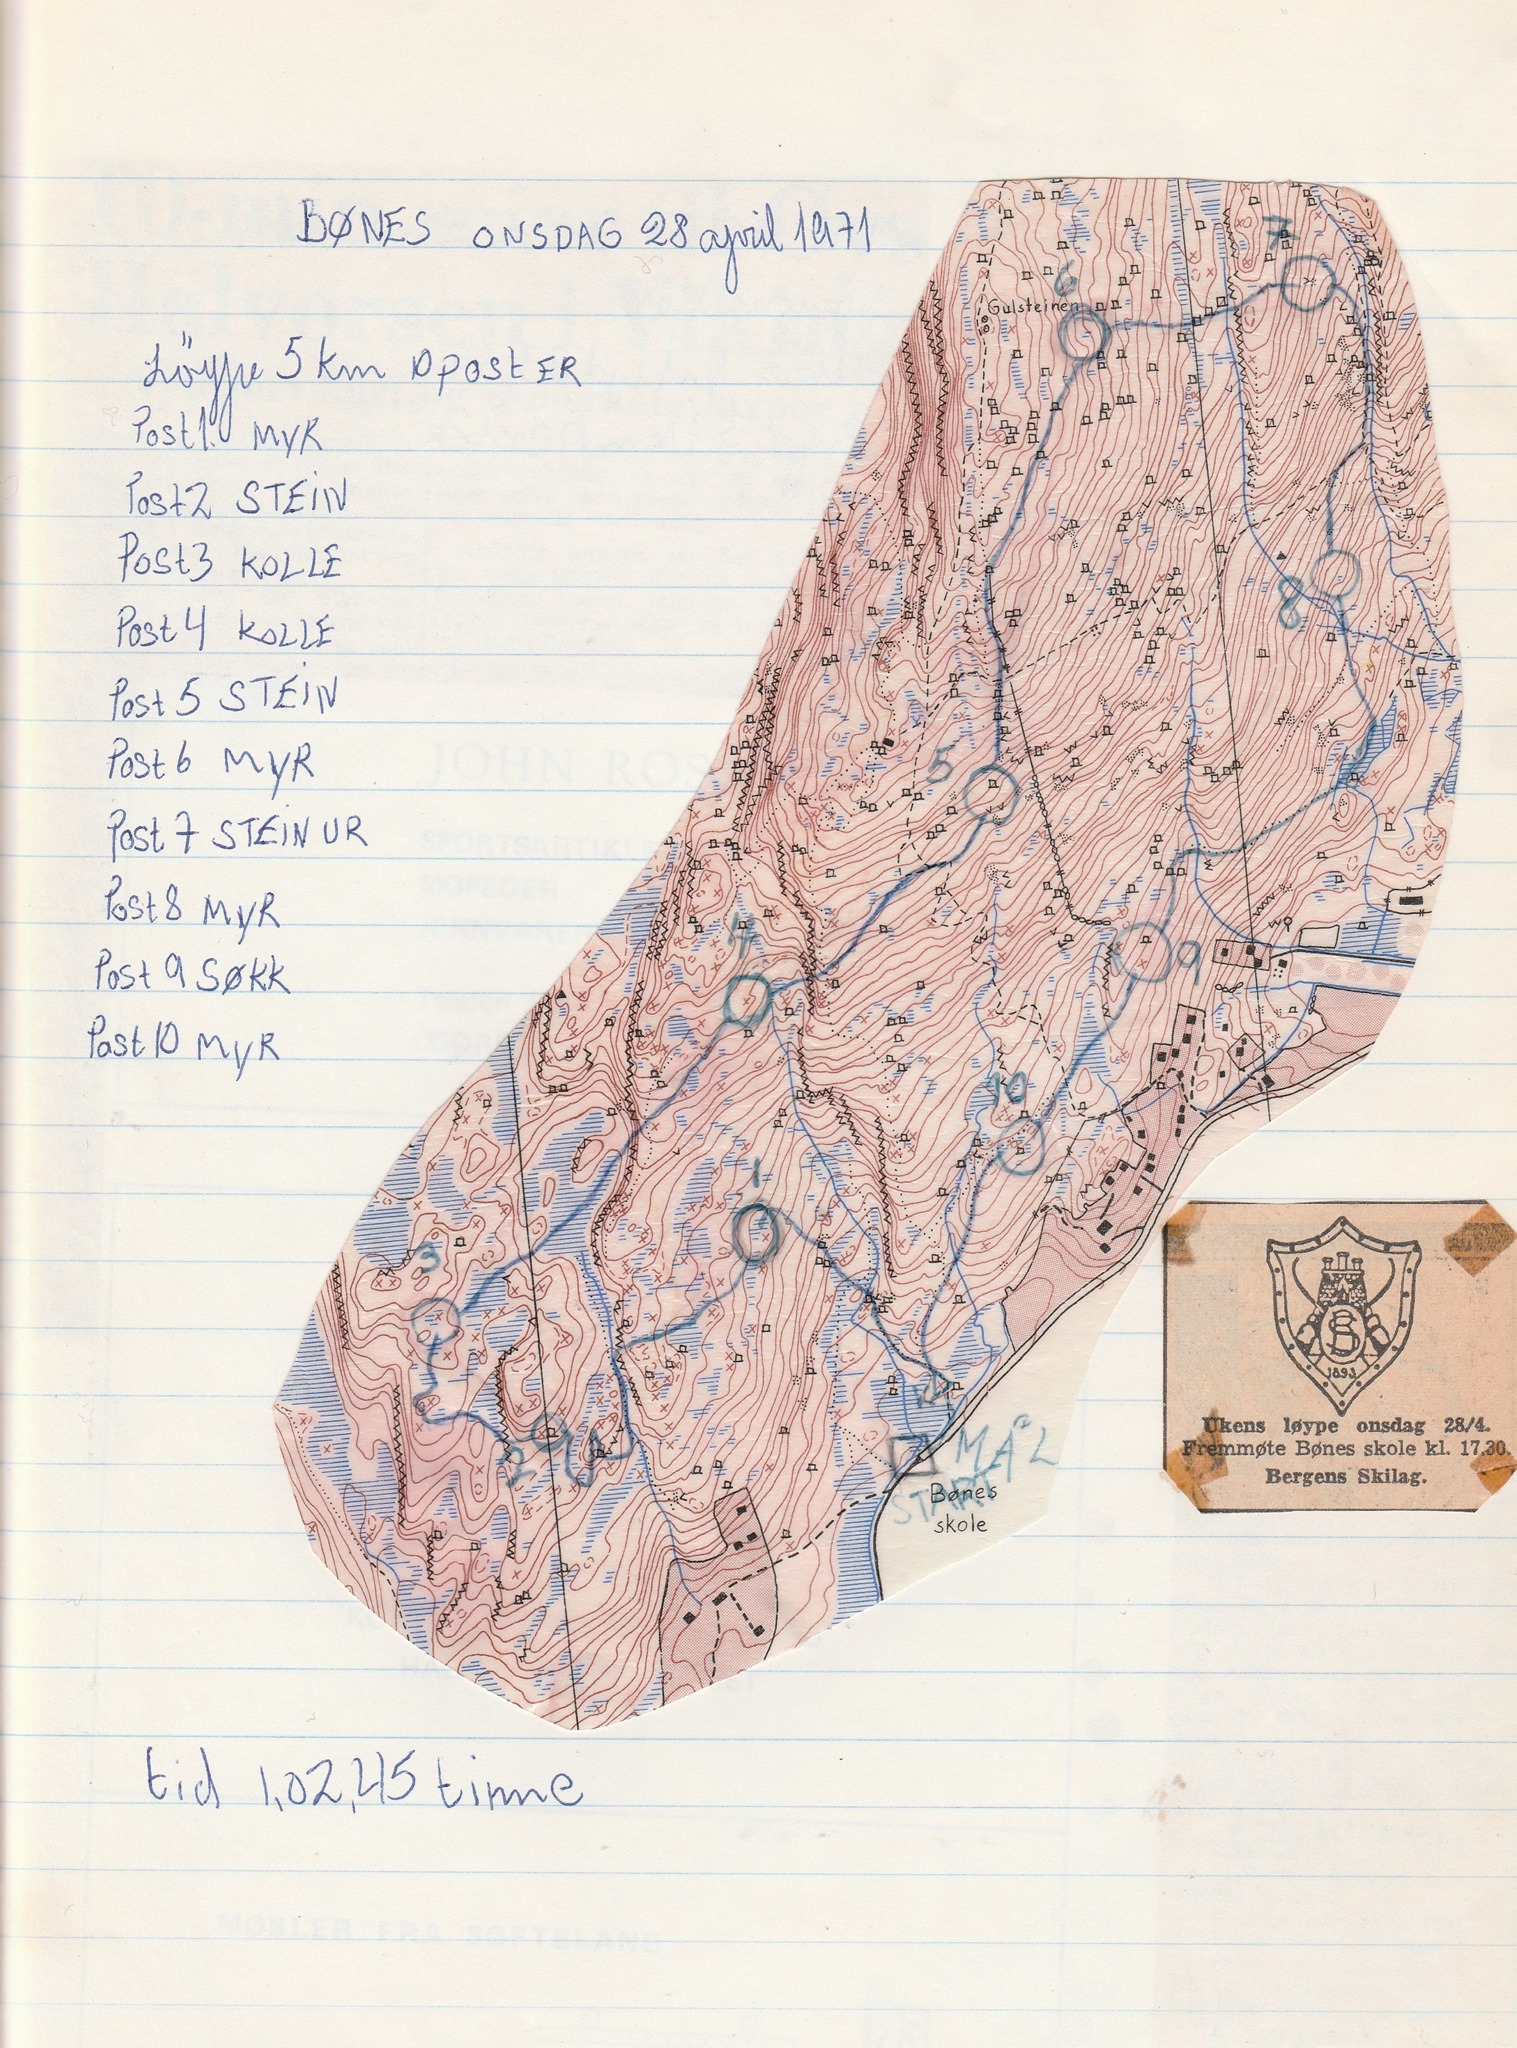 BØNES ONSDAG 28 april 1971
Löype 5 km 10 POSTER
Post 1. MYR
Post 2 STEIN
Post 3 KOLLE
Post 4 KOLLE
Post 5 STEIN
Post 6 MYR
Post 7 STEIN UR
Post 8 MYR
Post 9 SØKK
Post 10 MYR
7
6
Gulsteinen
8
5
4
9
10
1
3
2
MÅL
START
Bønes
skole
1893
Ukens løype onsdag 28/4.
Fremmøte Bønes skole kl. 17.30.
Bergens Skilag.
tid 1,02,45 time
JOHN ROS
MOPEDER
MØBLER FRA SOFTELAND